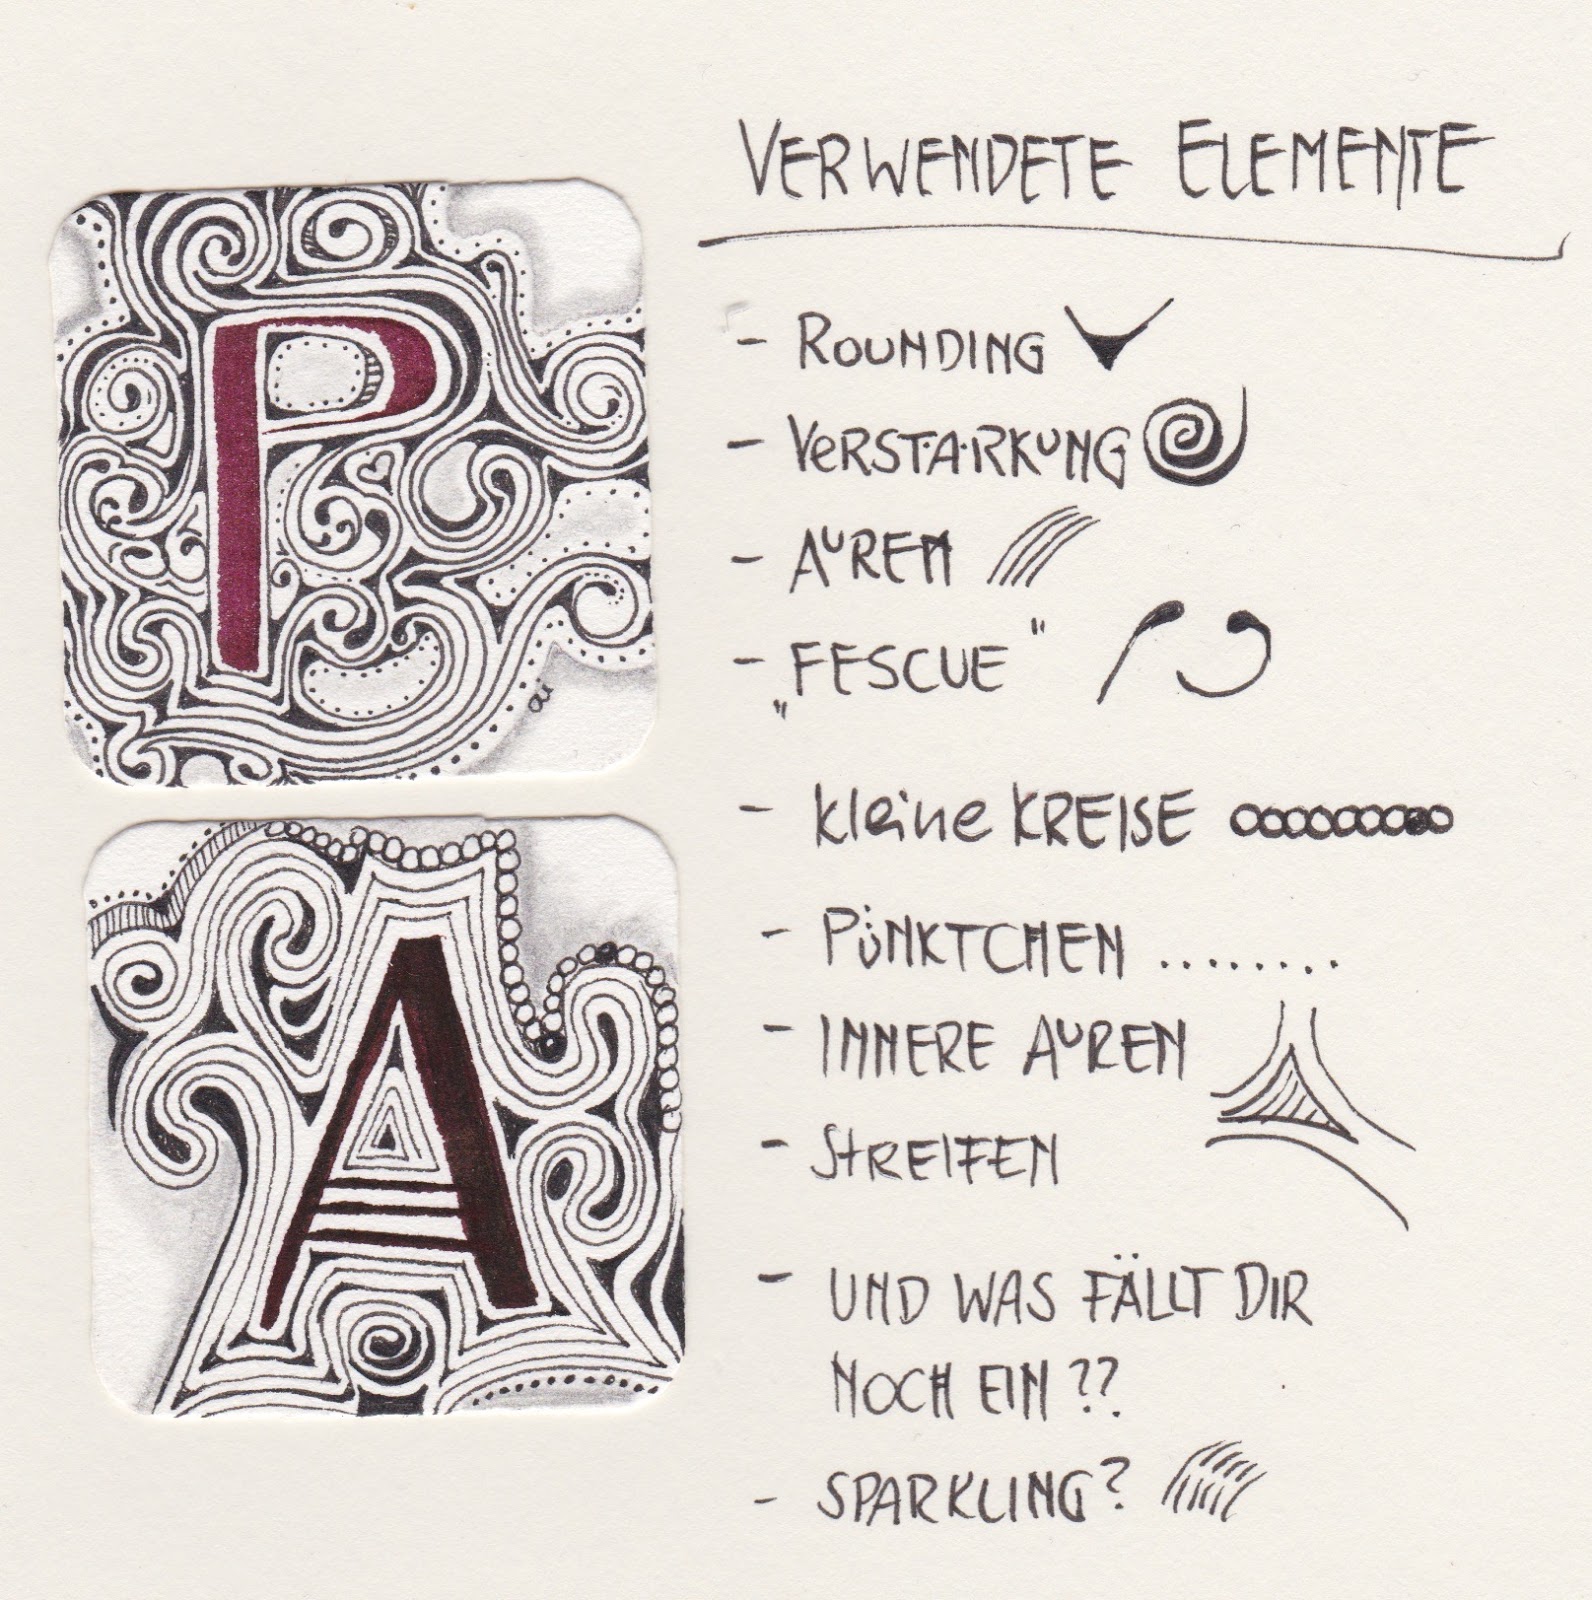 P
A
ai
VERWENDETE ELEMENTE
- ROUNDING
- VERSTÄRKUNG
- AUREN
- „FESCUE"
- kleine KREISE
- PÜNKTCHEN ........
- INNERE AUREN
- STREIFEN
- UND WAS FÄLLT DIR
NOCH EIN ??
- SPARKLING?